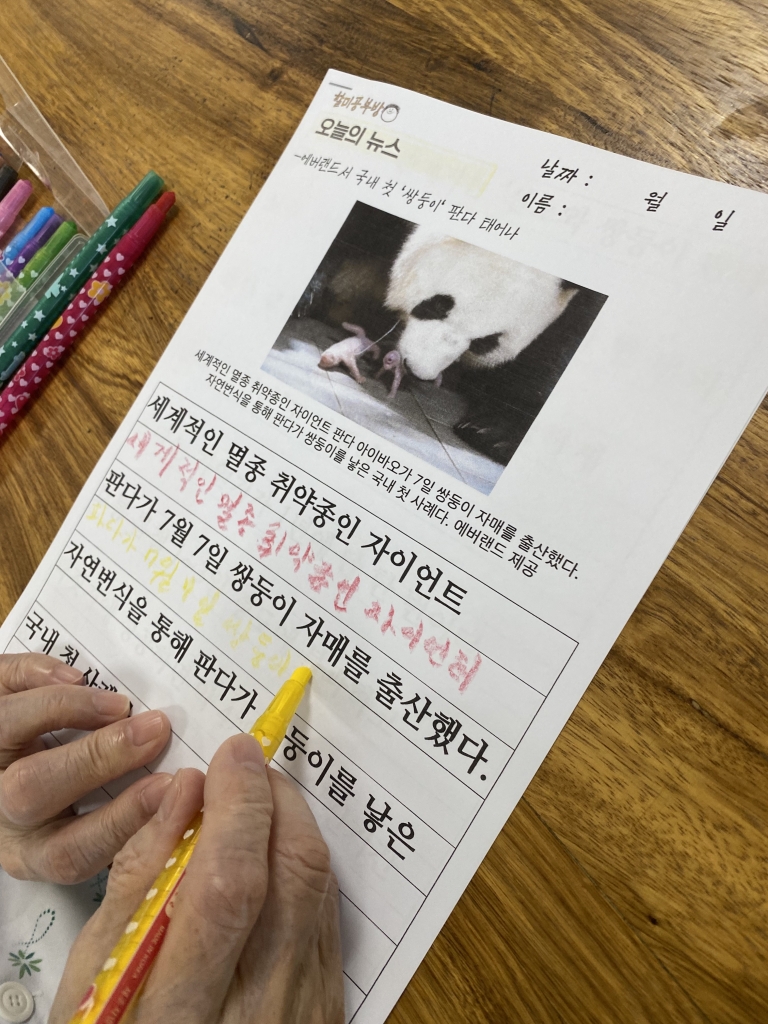 오늘의 뉴스
날짜 : 월 일
이름 :
-에버랜드서 국내 첫 '쌍둥이' 판다 태어나
세계적인 멸종 취약종인 자이언트 판다 아이바오가 7일 쌍둥이 자매를 출산했다.
자연번식을 통해 판다가 쌍둥이를 낳은 국내 첫 사례다. 에버랜드 제공
세계적인 멸종 취약종인 자이언트
세계적인 멸종 취약종인 자이언트
판다가 7월 7일 쌍둥이 자매를 출산했다.
판다가 7월 7일 쌍둥이
자연번식을 통해 판다가 둥이를 낳은
국내 첫